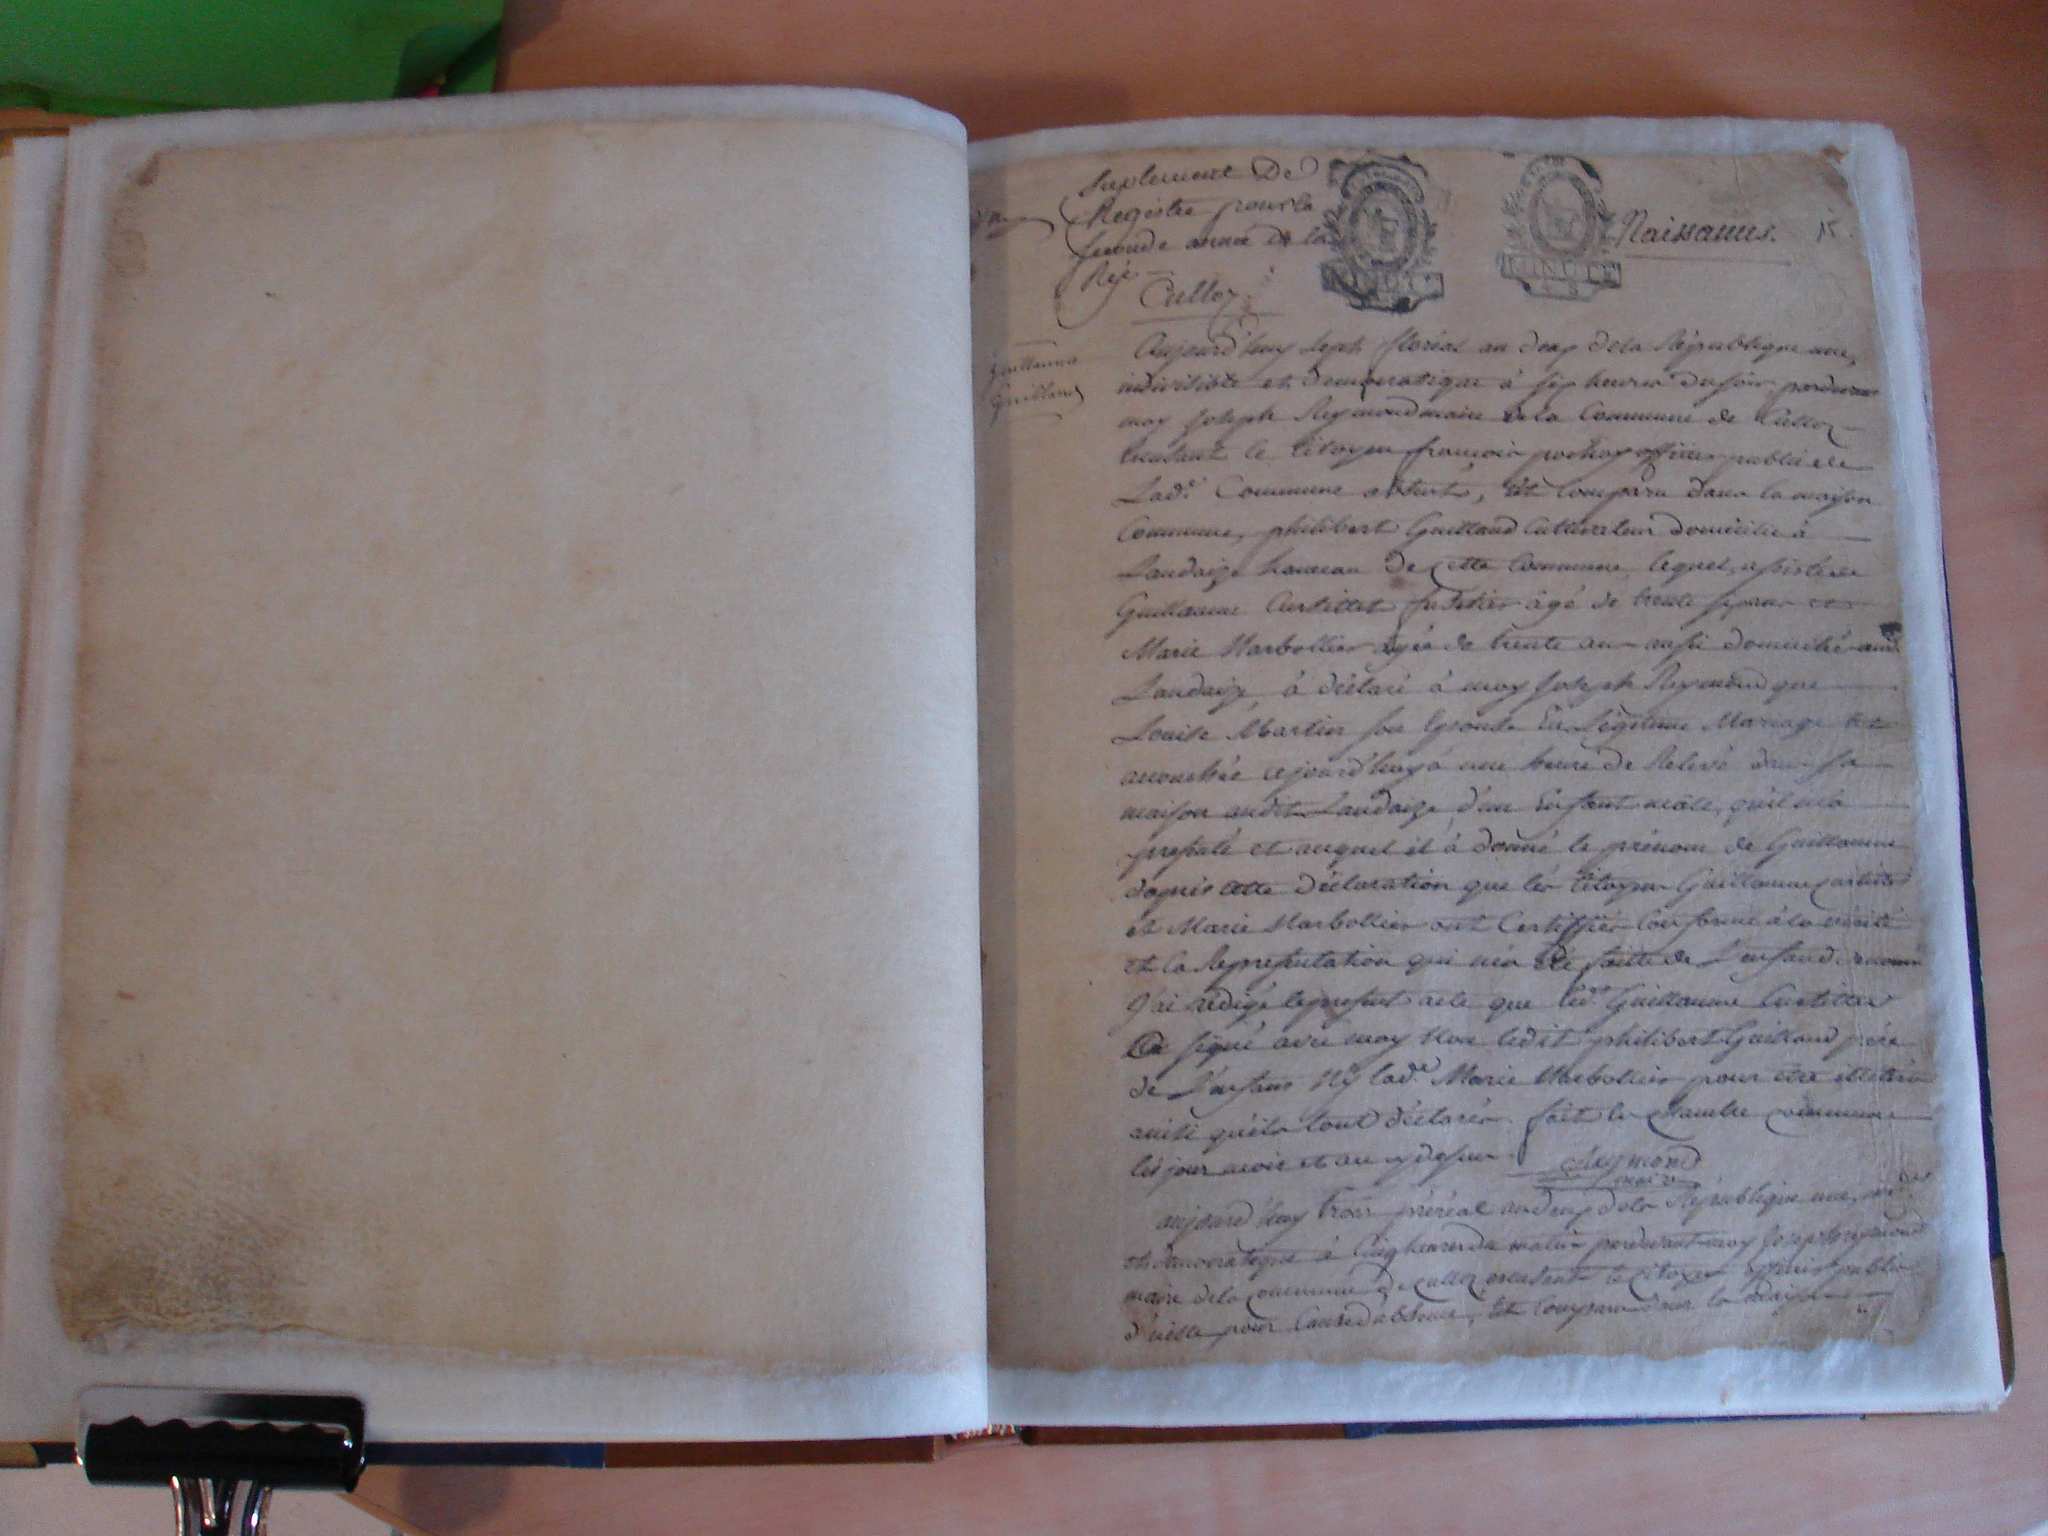 Suplement De
Registre pour la
seconde année de la
Rép
Culloz
Naissances.
15.
MINUTE
MINUTE
Guillaume
Guilland
Aujourd'huy sept floréal an deux dela République une,
indivisible et democratique à six heures du soir pardevant
moy Joseph Reymond maire de la Commune de Culloz
le Citoyen françois officier public de
Lad.e Commune absent, Est comparu dans la maison
Commune, philibert Guilland Cultivateur domicilié à
Landaize hameau de cette Commune, lequel, assisté de
Guillaume Curtillet âgé de trente ans et
Marie Marbollier agée de trente an aussi domicilié aud.
Landaize, à déclaré à moy Joseph Reymond que
Louise Martin son Epouse En Légitime Mariage est
accouchée cejourd'huy à une heure de Relevé dans sa
maison audit Landaize d'un Enfant mâle, qu'il m'a
presenté et auquel il à donné le prénom de Guillaume
d'apres cette déclaration que les Citoyens Guillaume Curtillet
et Marie Marbollier ont Certiffier Conforme à la vérité
et la Representation qui m'a été faitte de L'enfand denommé
J'ai redigé le present acte que led.t Guillaume Curtillet
a signé avec moy Non ledit philibert Guilland père
de L'enfans Ny lad.e Marie Marbollier pour être illetéré
ainsi qu'ils l'ont déclarés. fait en Chambre commune
les jour mois et an cy dessus.
Reymond
maire
aujourd'huy trois préréal an deux dela République une, ind.ble
et democratique à Cinq heures du matin pardevant moy Joseph reymond
maire dela commune de culloz le citoyen officier public
d'icelle pour Cause d'absence, Est Comparu dans la maison